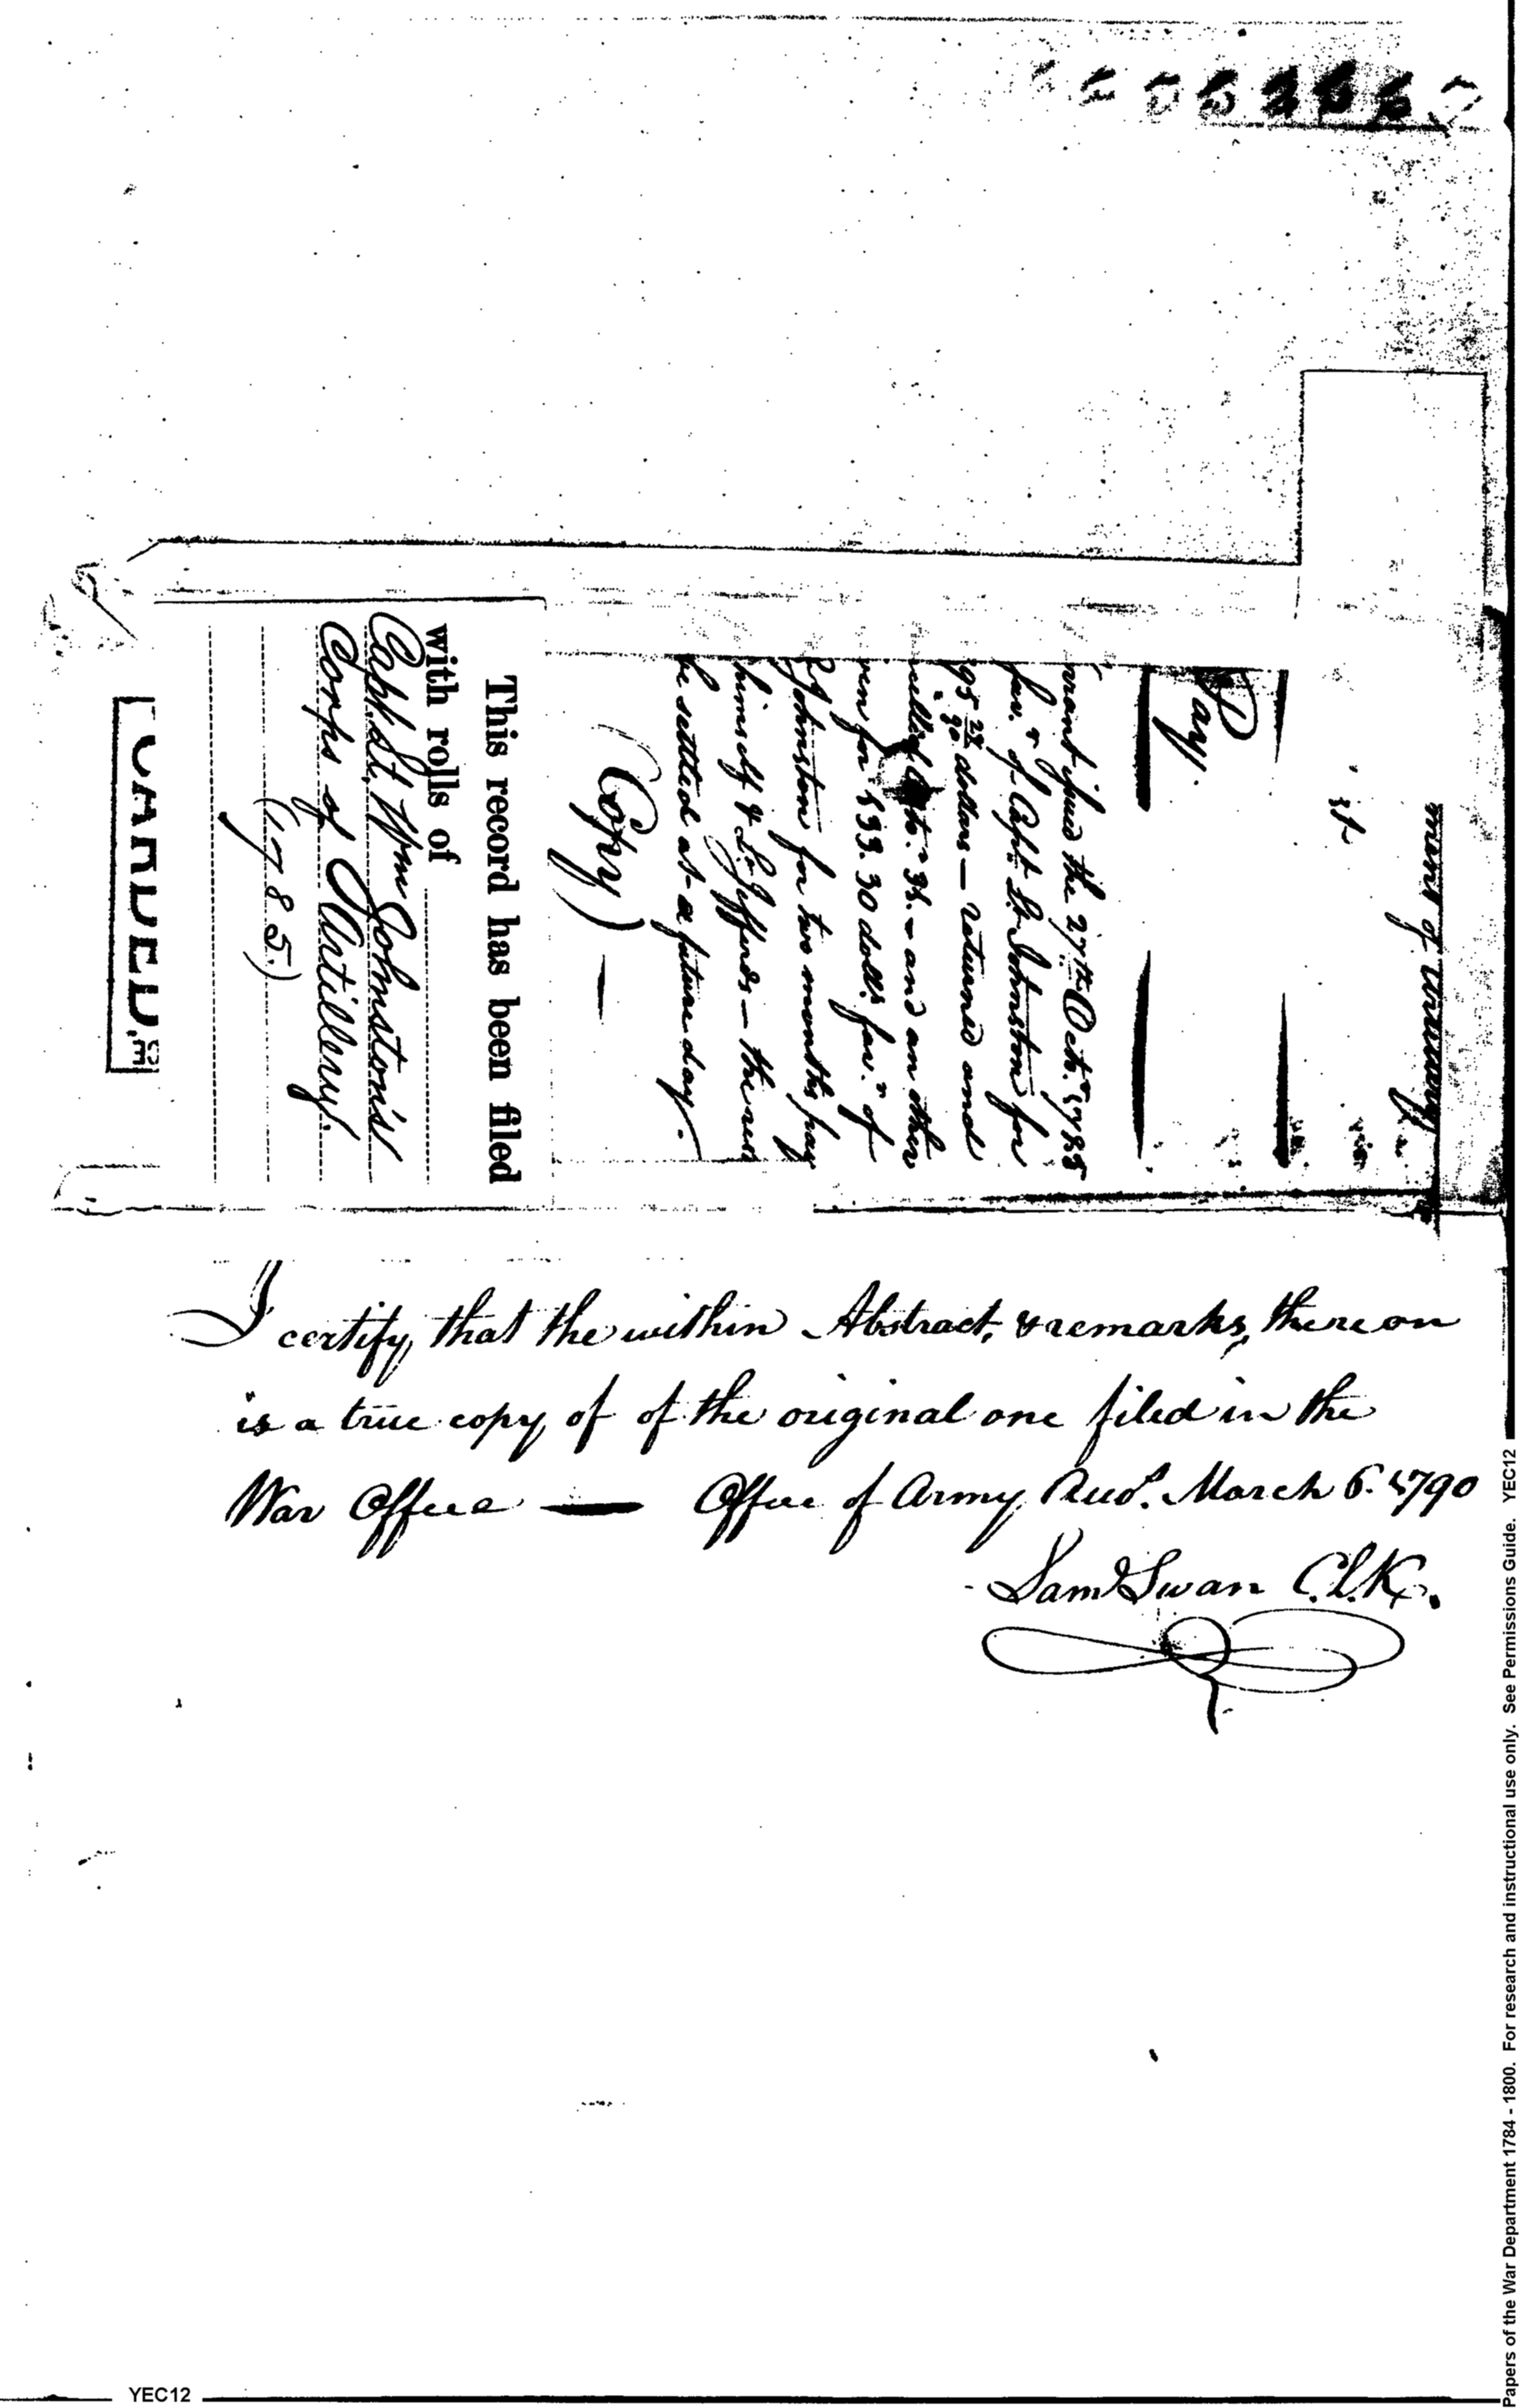 ment of
st
Pay.
rrant issued the 27th Octr. 1785
favr. of Capt Lt. Johnston for
95 27/90 dollars — returned and
and an other
ven for 533.30 dolls. favr. of
Johnston for two months pay
himself & Lt. Jeffers — the rest
be settled at a future day.
(Copy) —
This record has been filed
with rolls of
Capt. Lt. Wm Johnston's
Corps of Artillery.
(1785.)
CARDED.
I certify that the within Abstract, & remarks, thereon
is a true copy of of the original one filed in the
War Office — Office of Army Aud. March 6. 1790
Saml Swan C.L.K.
YEC12
Papers of the War Department 1784 - 1800. For research and instructional use only. See Permissions Guide. YEC12